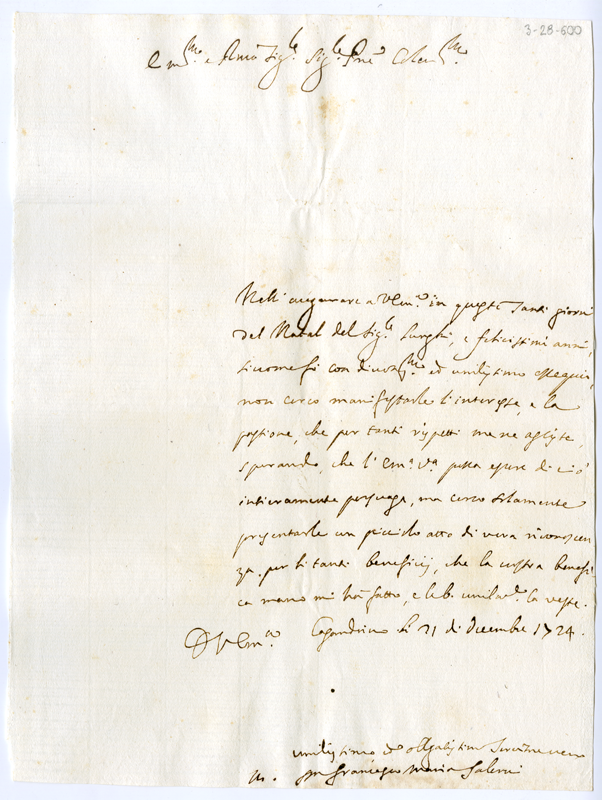 3-28-600
Em.mo e Rmo Sig.r Sig.r Pne Colen.mo
Nell' augurare a V Em.a in questi santi giorni
del Natal del Sig.re lunghi, e felicissimi anni,
con divot.mo ed umilissimo ossequio,
non cerco manifestarle l'interesse, e la
passione, che per tanti rispetti me ne assiste,
sperando, che l'Em.a V.a possa essere di ciò
intieramente persuasa, ma cerco solamente
presentarle un piccolo atto di vera riconoscen
za per li tanti beneficij, che la vostra benefi
ca mano mi hà fatto, e le b. umilm.te la veste.
D V Em.a li 21 di Dicembre 1724.
umilissimo ed obligatissimo Servitore vero
Francesco Maria Salerni